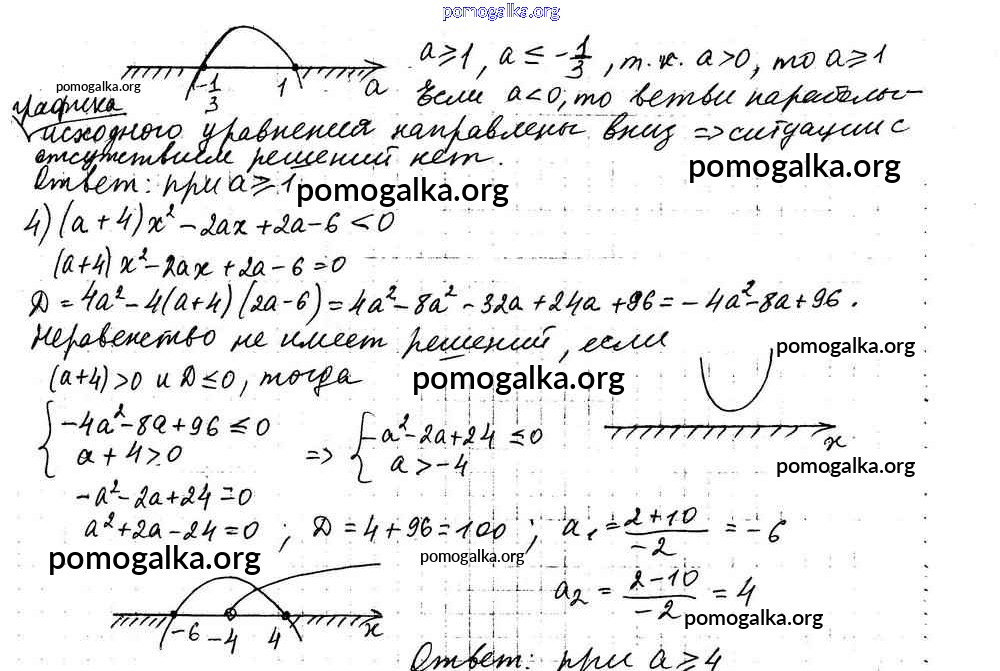 pomogalka.org
a ≥ 1, a ≤ -1/3, т.к. a > 0, то a ≥ 1
pomogalka.org
-1/3 1 a
Если a < 0, то ветви параболы
графика
исходного уравнения направлены вниз => ситуации с
отсутствием решений нет.
pomogalka.org
Ответ: при a ≥ 1
pomogalka.org
4) (a + 4)x² - 2ax + 2a - 6 < 0
(a+4)x² - 2ax + 2a - 6 = 0
Д = 4a² - 4(a+4)(2a-6) = 4a² - 8a² - 32a + 24a + 96 = -4a² - 8a + 96.
Неравенство не имеет решений, если
pomogalka.org
(a+4) > 0 и Д ≤ 0, тогда
pomogalka.org
{ -4a² - 8a + 96 ≤ 0
a + 4 > 0
=> { -a² - 2a + 24 ≤ 0
a > -4
x
pomogalka.org
-a² - 2a + 24 = 0
a² + 2a - 24 = 0 ; Д = 4 + 96 = 100 ; a₁ = (2+10)/-2 = -6
pomogalka.org
pomogalka.org
a₂ = (2-10)/-2 = 4
pomogalka.org
-6 -4 4 x
Ответ: при a ≥ 4